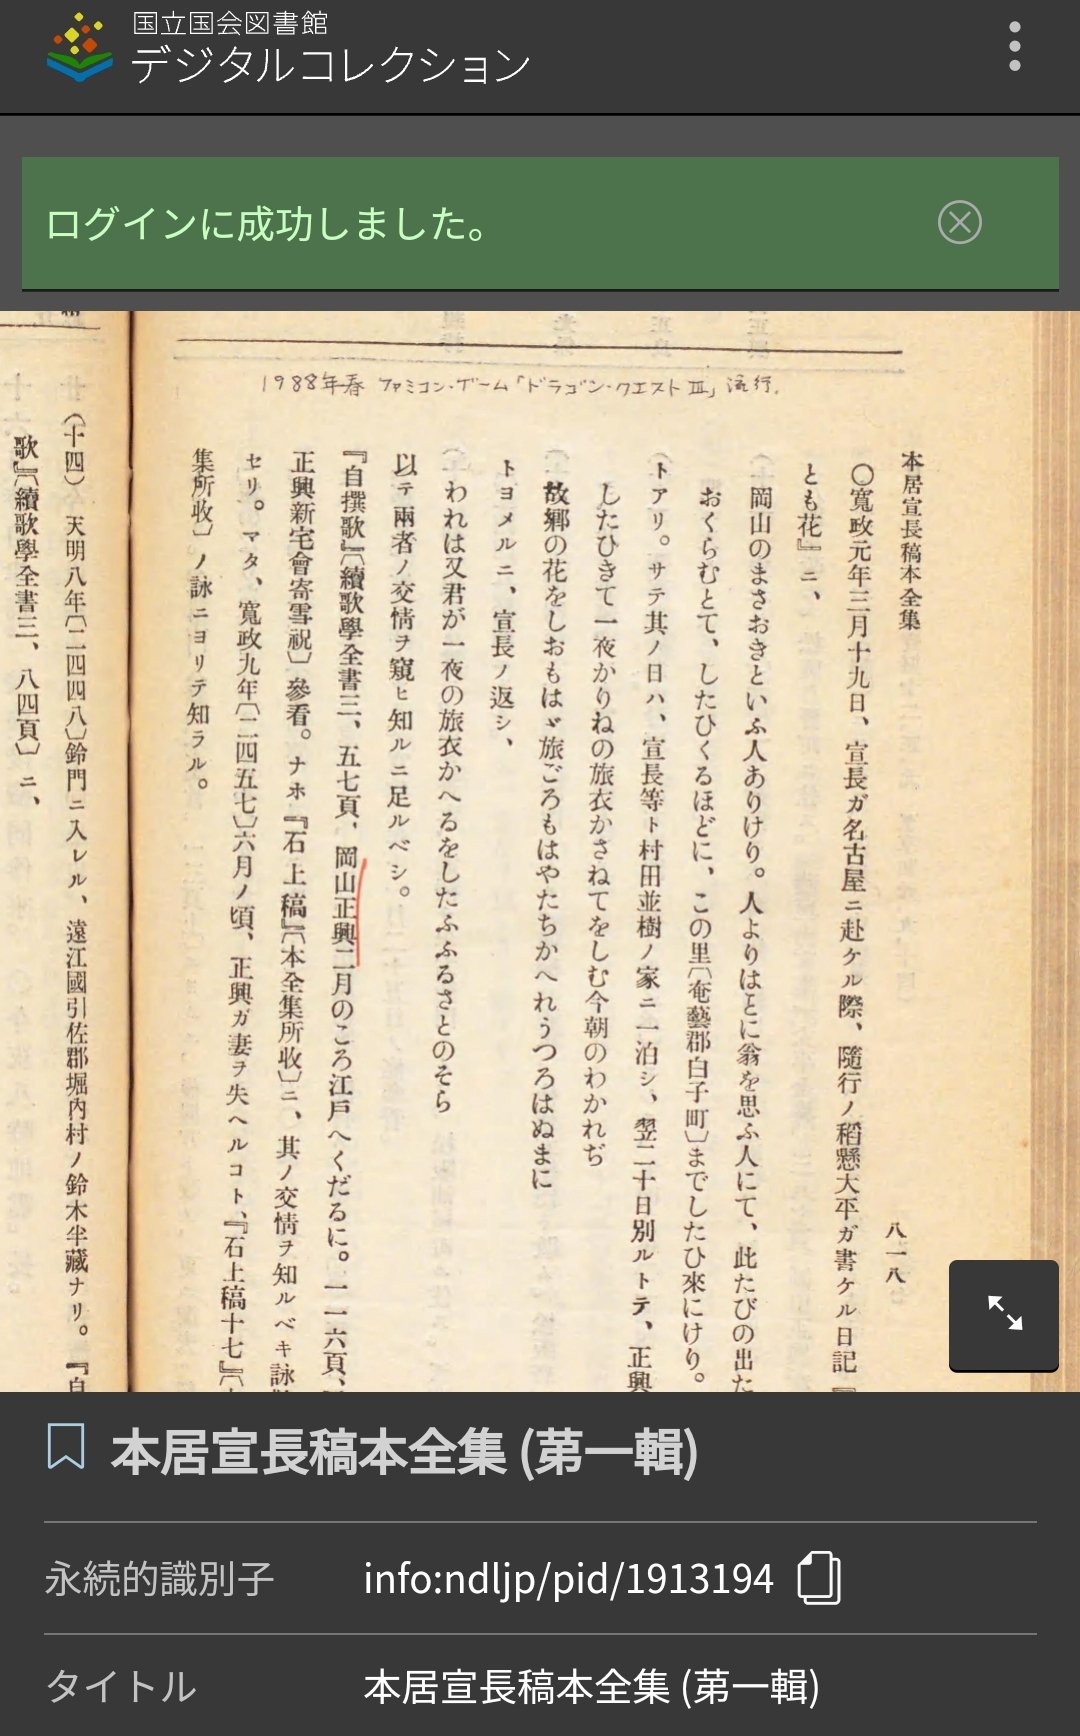 国立国会図書館
デジタルコレクション
ログインに成功しました。
1988年春 ファミコン・ゲーム「ドラゴン・クエストⅢ」流行.
本居宣長稿本全集
八一八
〇寬政元年三月十九日、宣長ガ名古屋ニ赴ケル際、隨行ノ稻懸大平ガ書ケル日記『
とも花』ニ、
岡山のまさおきといふ人ありけり。人よりはことに翁を思ふ人にて、此たびの出た
おくらむとて、したひくるほどに、この里〔奄藝郡白子町〕までしたひ來にけり。
トアリ。サテ其ノ日ハ、宣長等ト村田並樹ノ家ニ一泊シ、翌二十日別ルトテ、正興
したひきて一夜かりねの旅衣かさねてをしむ今朝のわかれぢ
故鄕の花をしおもはゞ旅ごろもはやたちかへれうつろはぬまに
トヨメルニ、宣長ノ返シ、
われは又君が一夜の旅衣かへるをしたふふるさとのそら
以テ兩者ノ交情ヲ窺ヒ知ルニ足ルベシ。
『自撰歌』〔續歌學全書三、五七頁、岡山正興二月のころ江戶へくだるに。一一六頁、
正興新宅會寄雪祝〕參看。ナホ『石上稿』〔本全集所收〕ニ、其ノ交情ヲ知ルベキ詠
セリ。マタ、寬政九年〔二四五七〕六月ノ頃、正興ガ妻ヲ失ヘルコト、『石上稿十七』〔
集所收〕ノ詠ニヨリテ知ラル。
(十四) 天明八年〔二四四八〕鈴門ニ入レル、遠江國引佐郡堀內村ノ鈴木半藏ナリ。『自
歌』〔續歌學全書三、八四頁〕ニ、
本居宣長稿本全集 (第一輯)
永続的識別子 info:ndljp/pid/1913194
タイトル 本居宣長稿本全集 (第一輯)